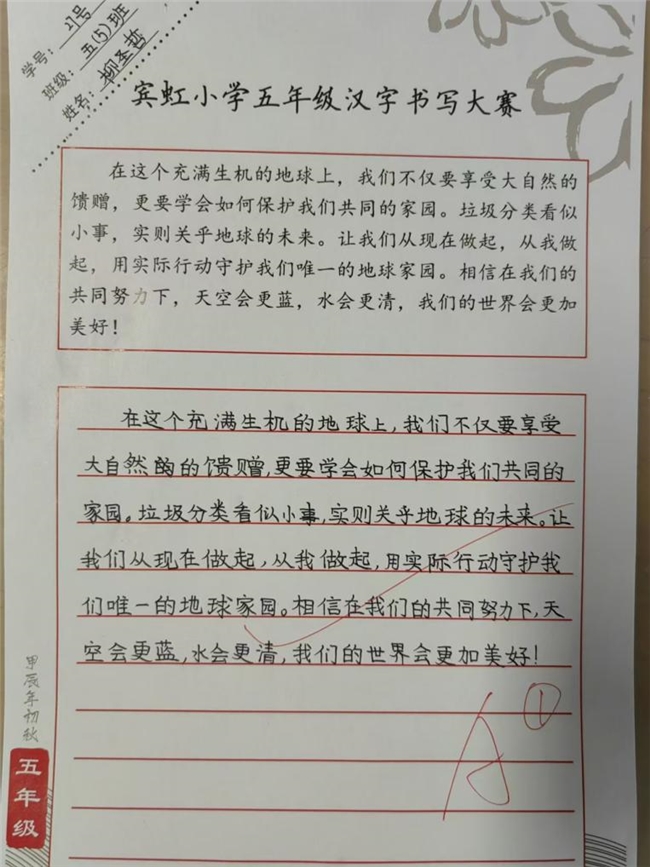 学号：27号
班级：五(5)班
姓名：柳圣哲
宾虹小学五年级汉字书写大赛
在这个充满生机的地球上，我们不仅要享受大自然的
馈赠，更要学会如何保护我们共同的家园。垃圾分类看似
小事，实则关乎地球的未来。让我们从现在做起，从我做
起，用实际行动守护我们唯一的地球家园。相信在我们的
共同努力下，天空会更蓝，水会更清，我们的世界会更加
美好！
在这个充满生机的地球上，我们不仅要享受
大自然的的馈赠，更要学会如何保护我们共同的
家园。垃圾分类看似小事，实则关乎地球的未来。让
我们从现在做起，从我做起，用实际行动守护我
们唯一的地球家园。相信在我们的共同努力下，天
空会更蓝，水会更清，我们的世界会更加美好！
A①
甲辰年初秋
五年级